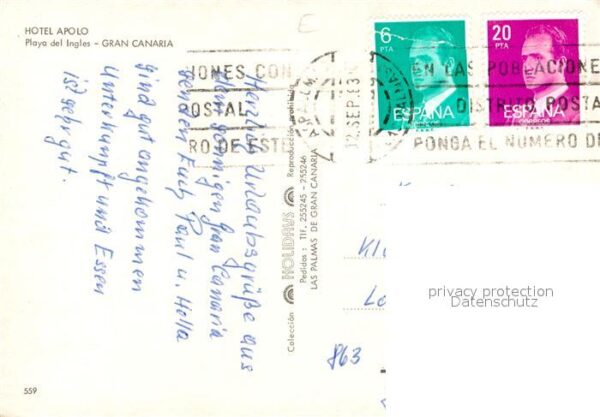 HOTEL APOLO
Playa del Ingles - GRAN CANARIA
E
6
PTA
ESPAÑA
20
PTA
ESPAÑA
CORREOS
IONES CON
OSTAL
RO DE ESTE
SEP.
EN LAS POBLACIONE
DISTRITO POSTA
PONGA EL NUMERO DE
Herzliche Urlaubsgrüße aus
dem sonnigen Gran Canaria
senden Euch Paul u. Hella
sind gut angekommen
Unterkunft und Essen
ist sehr gut.
Colección HOLIDAYS Reproducción prohibida
Pedidos: Tlf. 255245 - 255246
LAS PALMAS DE GRAN CANARIA
863
privacy protection
Datenschutz
559